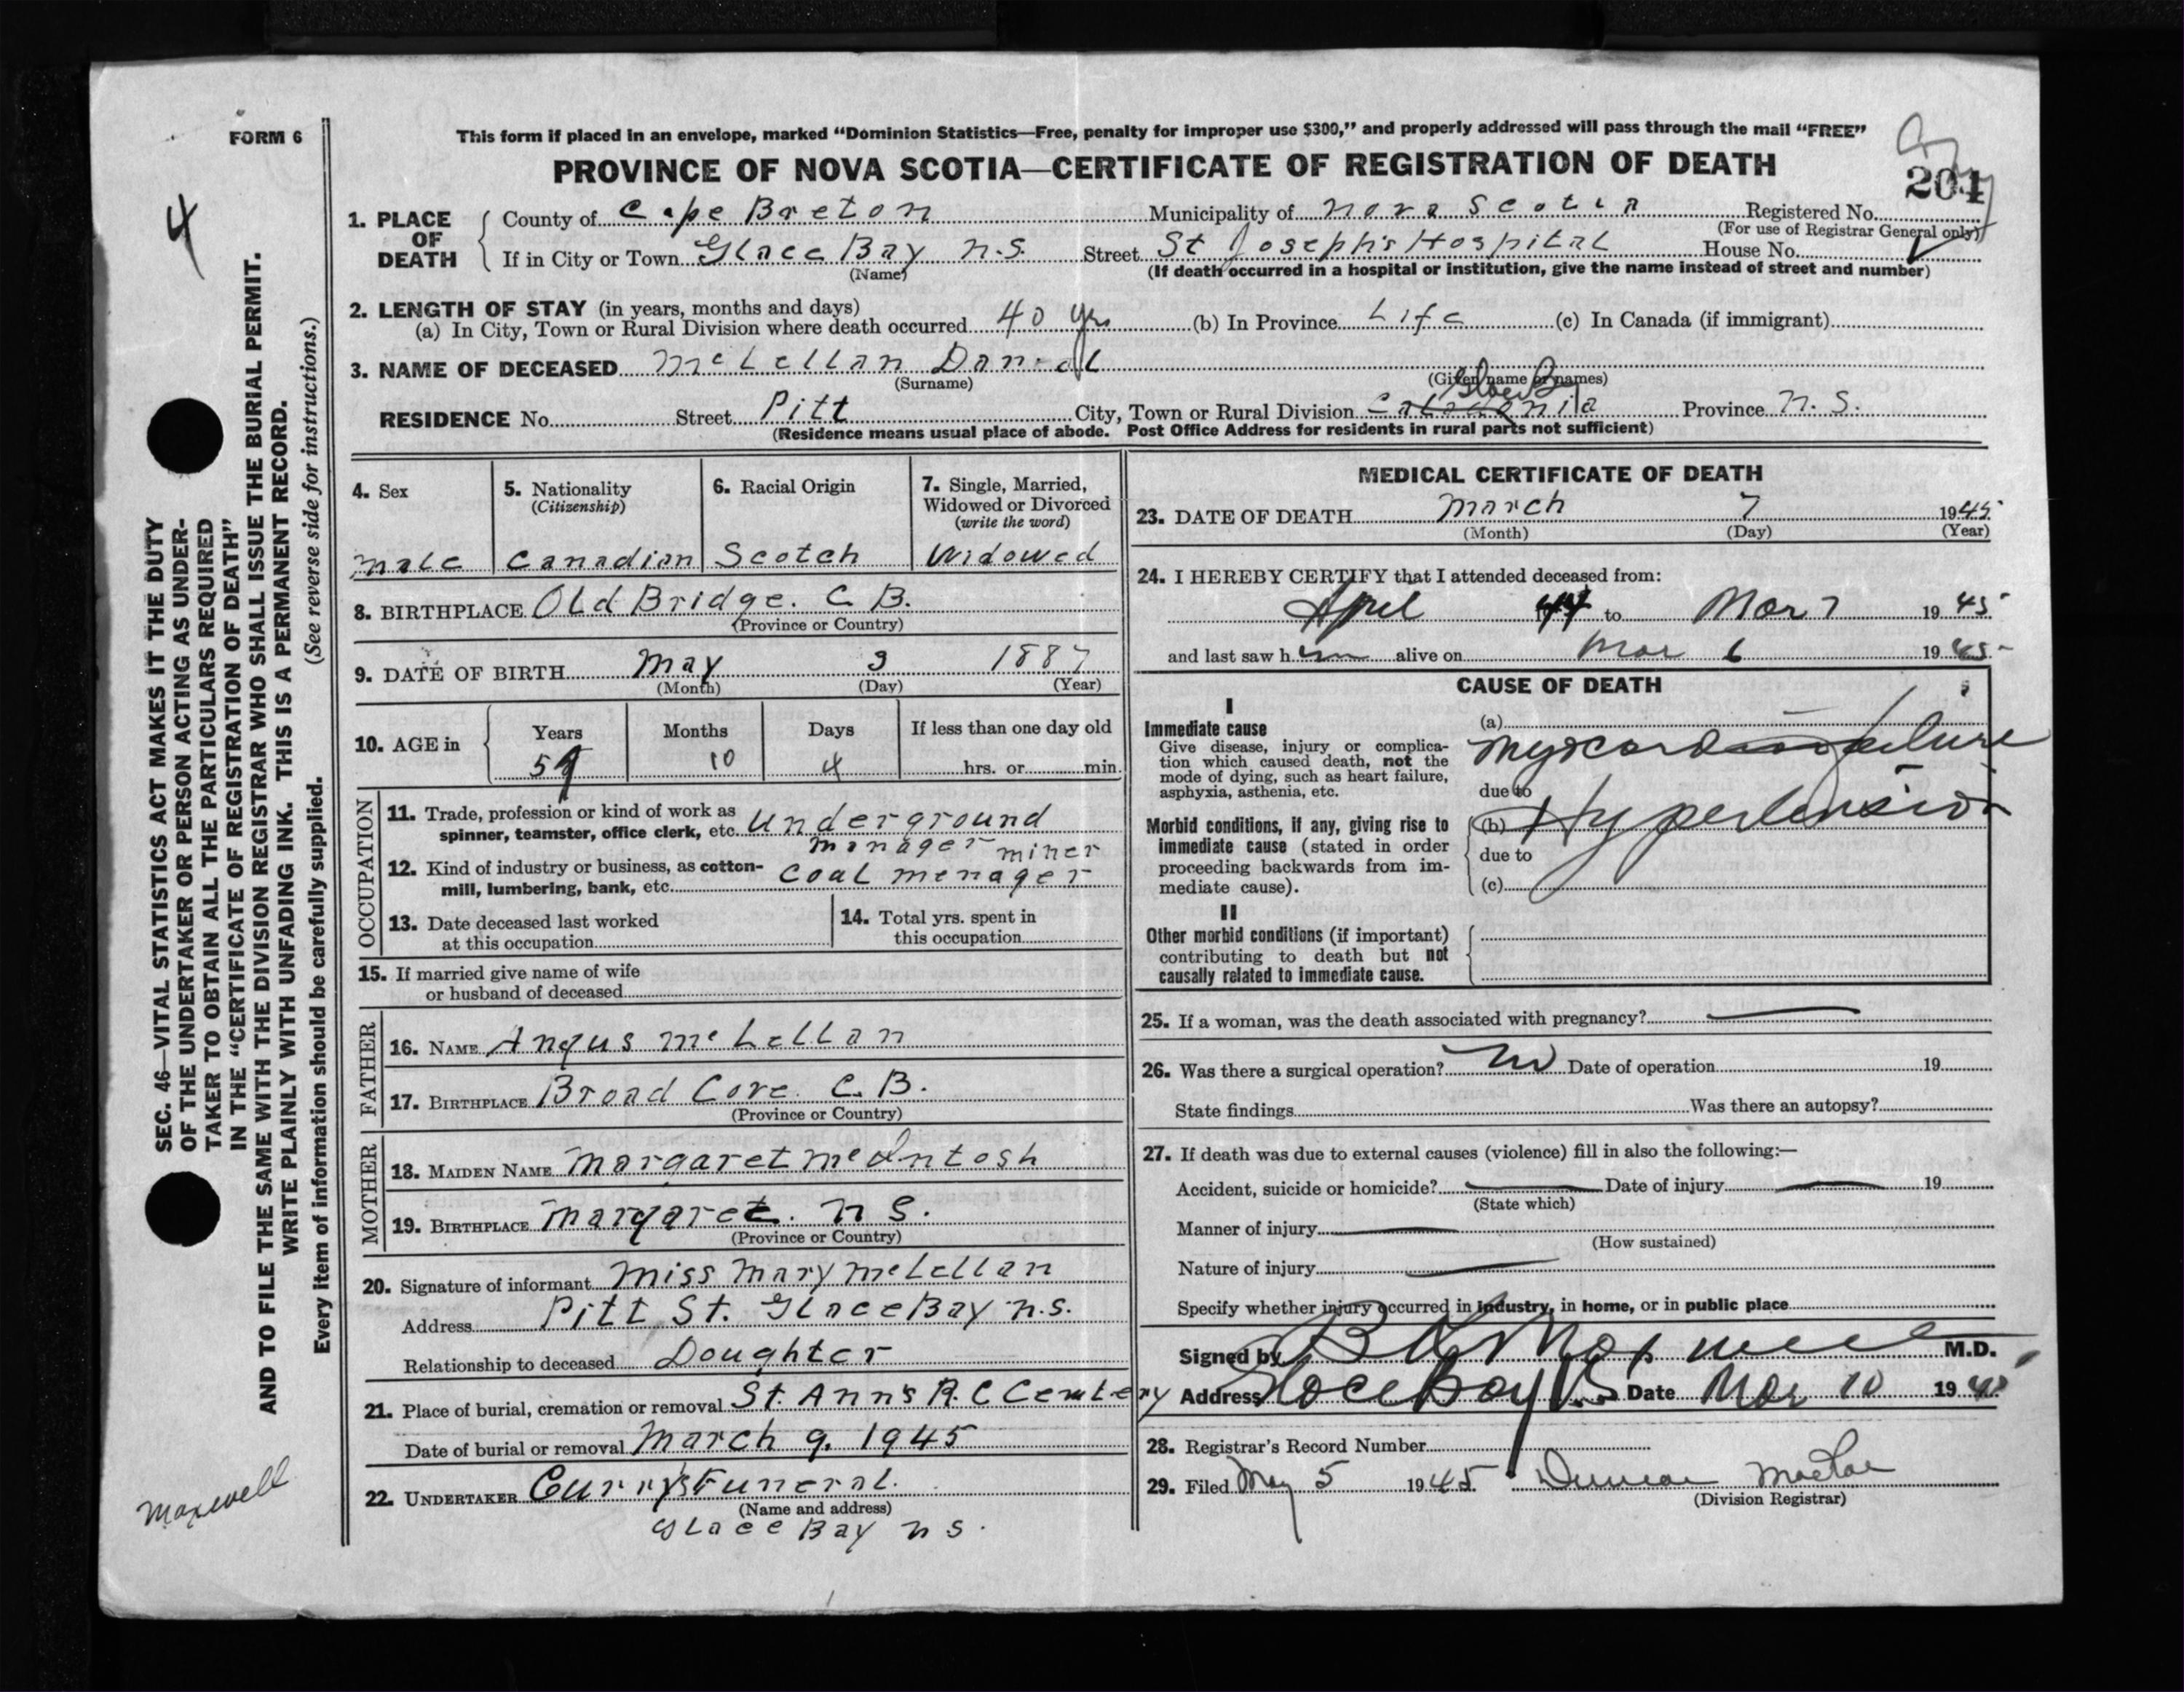 FORM 6
This form if placed in an envelope, marked “Dominion Statistics—Free, penalty for improper use $300,” and properly addressed will pass through the mail “FREE”
PROVINCE OF NOVA SCOTIA—CERTIFICATE OF REGISTRATION OF DEATH
201
4
1. PLACE OF DEATH
County of Cape Breton Municipality of Nova Scotia Registered No.
(For use of Registrar General only)
If in City or Town Glace Bay N.S. Street St Joseph's Hospital House No.
(Name) (If death occurred in a hospital or institution, give the name instead of street and number)
2. LENGTH OF STAY (in years, months and days)
(a) In City, Town or Rural Division where death occurred 40 yrs (b) In Province Life (c) In Canada (if immigrant)
3. NAME OF DECEASED McLellan Daniel
(Surname) (Given name or names)
Glace Bay
RESIDENCE No. Street Pitt City, Town or Rural Division Caledonia Province N.S.
(Residence means usual place of abode. Post Office Address for residents in rural parts not sufficient)
4. Sex
male
5. Nationality
(Citizenship)
Canadian
6. Racial Origin
Scotch
7. Single, Married,
Widowed or Divorced
(write the word)
Widowed
8. BIRTHPLACE Old Bridge. C. B.
(Province or Country)
9. DATE OF BIRTH May 3 1887
(Month) (Day) (Year)
10. AGE in
Years Months Days If less than one day old
10 4 hrs. or min.
OCCUPATION
11. Trade, profession or kind of work as
spinner, teamster, office clerk, etc. Underground
manager miner
12. Kind of industry or business, as cotton-
mill, lumbering, bank, etc. Coal menager
13. Date deceased last worked
at this occupation
14. Total yrs. spent in
this occupation
15. If married give name of wife
or husband of deceased
FATHER
16. NAME Angus McLellan
17. BIRTHPLACE Broad Cove. C. B.
(Province or Country)
MOTHER
18. MAIDEN NAME Margaret McIntosh
19. BIRTHPLACE Margaret. N S.
(Province or Country)
20. Signature of informant Miss Mary McLellan
Address Pitt St. Glace Bay N.S.
Relationship to deceased Doughter
21. Place of burial, cremation or removal St. Ann's R. C Cemtery
Date of burial or removal March 9. 1945
22. UNDERTAKER Curry's Funeral.
(Name and address)
Glace Bay N S.
MEDICAL CERTIFICATE OF DEATH
23. DATE OF DEATH March 7 1945
(Month) (Day) (Year)
24. I HEREBY CERTIFY that I attended deceased from:
April 44 to Mar 7 1945
and last saw him alive on Mar 6 1945
CAUSE OF DEATH
I
Immediate cause
Give disease, injury or complica-
tion which caused death, not the
mode of dying, such as heart failure,
asphyxia, asthenia, etc.
(a)
failure
due to
Morbid conditions, if any, giving rise to
immediate cause (stated in order
proceeding backwards from im-
mediate cause).
(b) Hypertension
due to
(c)
II
Other morbid conditions (if important)
contributing to death but not
causally related to immediate cause.
25. If a woman, was the death associated with pregnancy?
26. Was there a surgical operation? no Date of operation 19
State findings Was there an autopsy?
27. If death was due to external causes (violence) fill in also the following:—
Accident, suicide or homicide? Date of injury 19
(State which)
Manner of injury
(How sustained)
Nature of injury
Specify whether injury occurred in industry, in home, or in public place
Signed by Maxwell M.D.
Address Glace Bay N.S. Date Mar 10 1945
28. Registrar's Record Number
29. Filed May 5 1945 Duncan MacRae
(Division Registrar)
SEC. 46—VITAL STATISTICS ACT MAKES IT THE DUTY
OF THE UNDERTAKER OR PERSON ACTING AS UNDER-
TAKER TO OBTAIN ALL THE PARTICULARS REQUIRED
IN THE “CERTIFICATE OF REGISTRATION OF DEATH”
AND TO FILE THE SAME WITH THE DIVISION REGISTRAR WHO SHALL ISSUE THE BURIAL PERMIT.
WRITE PLAINLY WITH UNFADING INK. THIS IS A PERMANENT RECORD.
Every item of information should be carefully supplied. (See reverse side for instructions.)
Maxwell